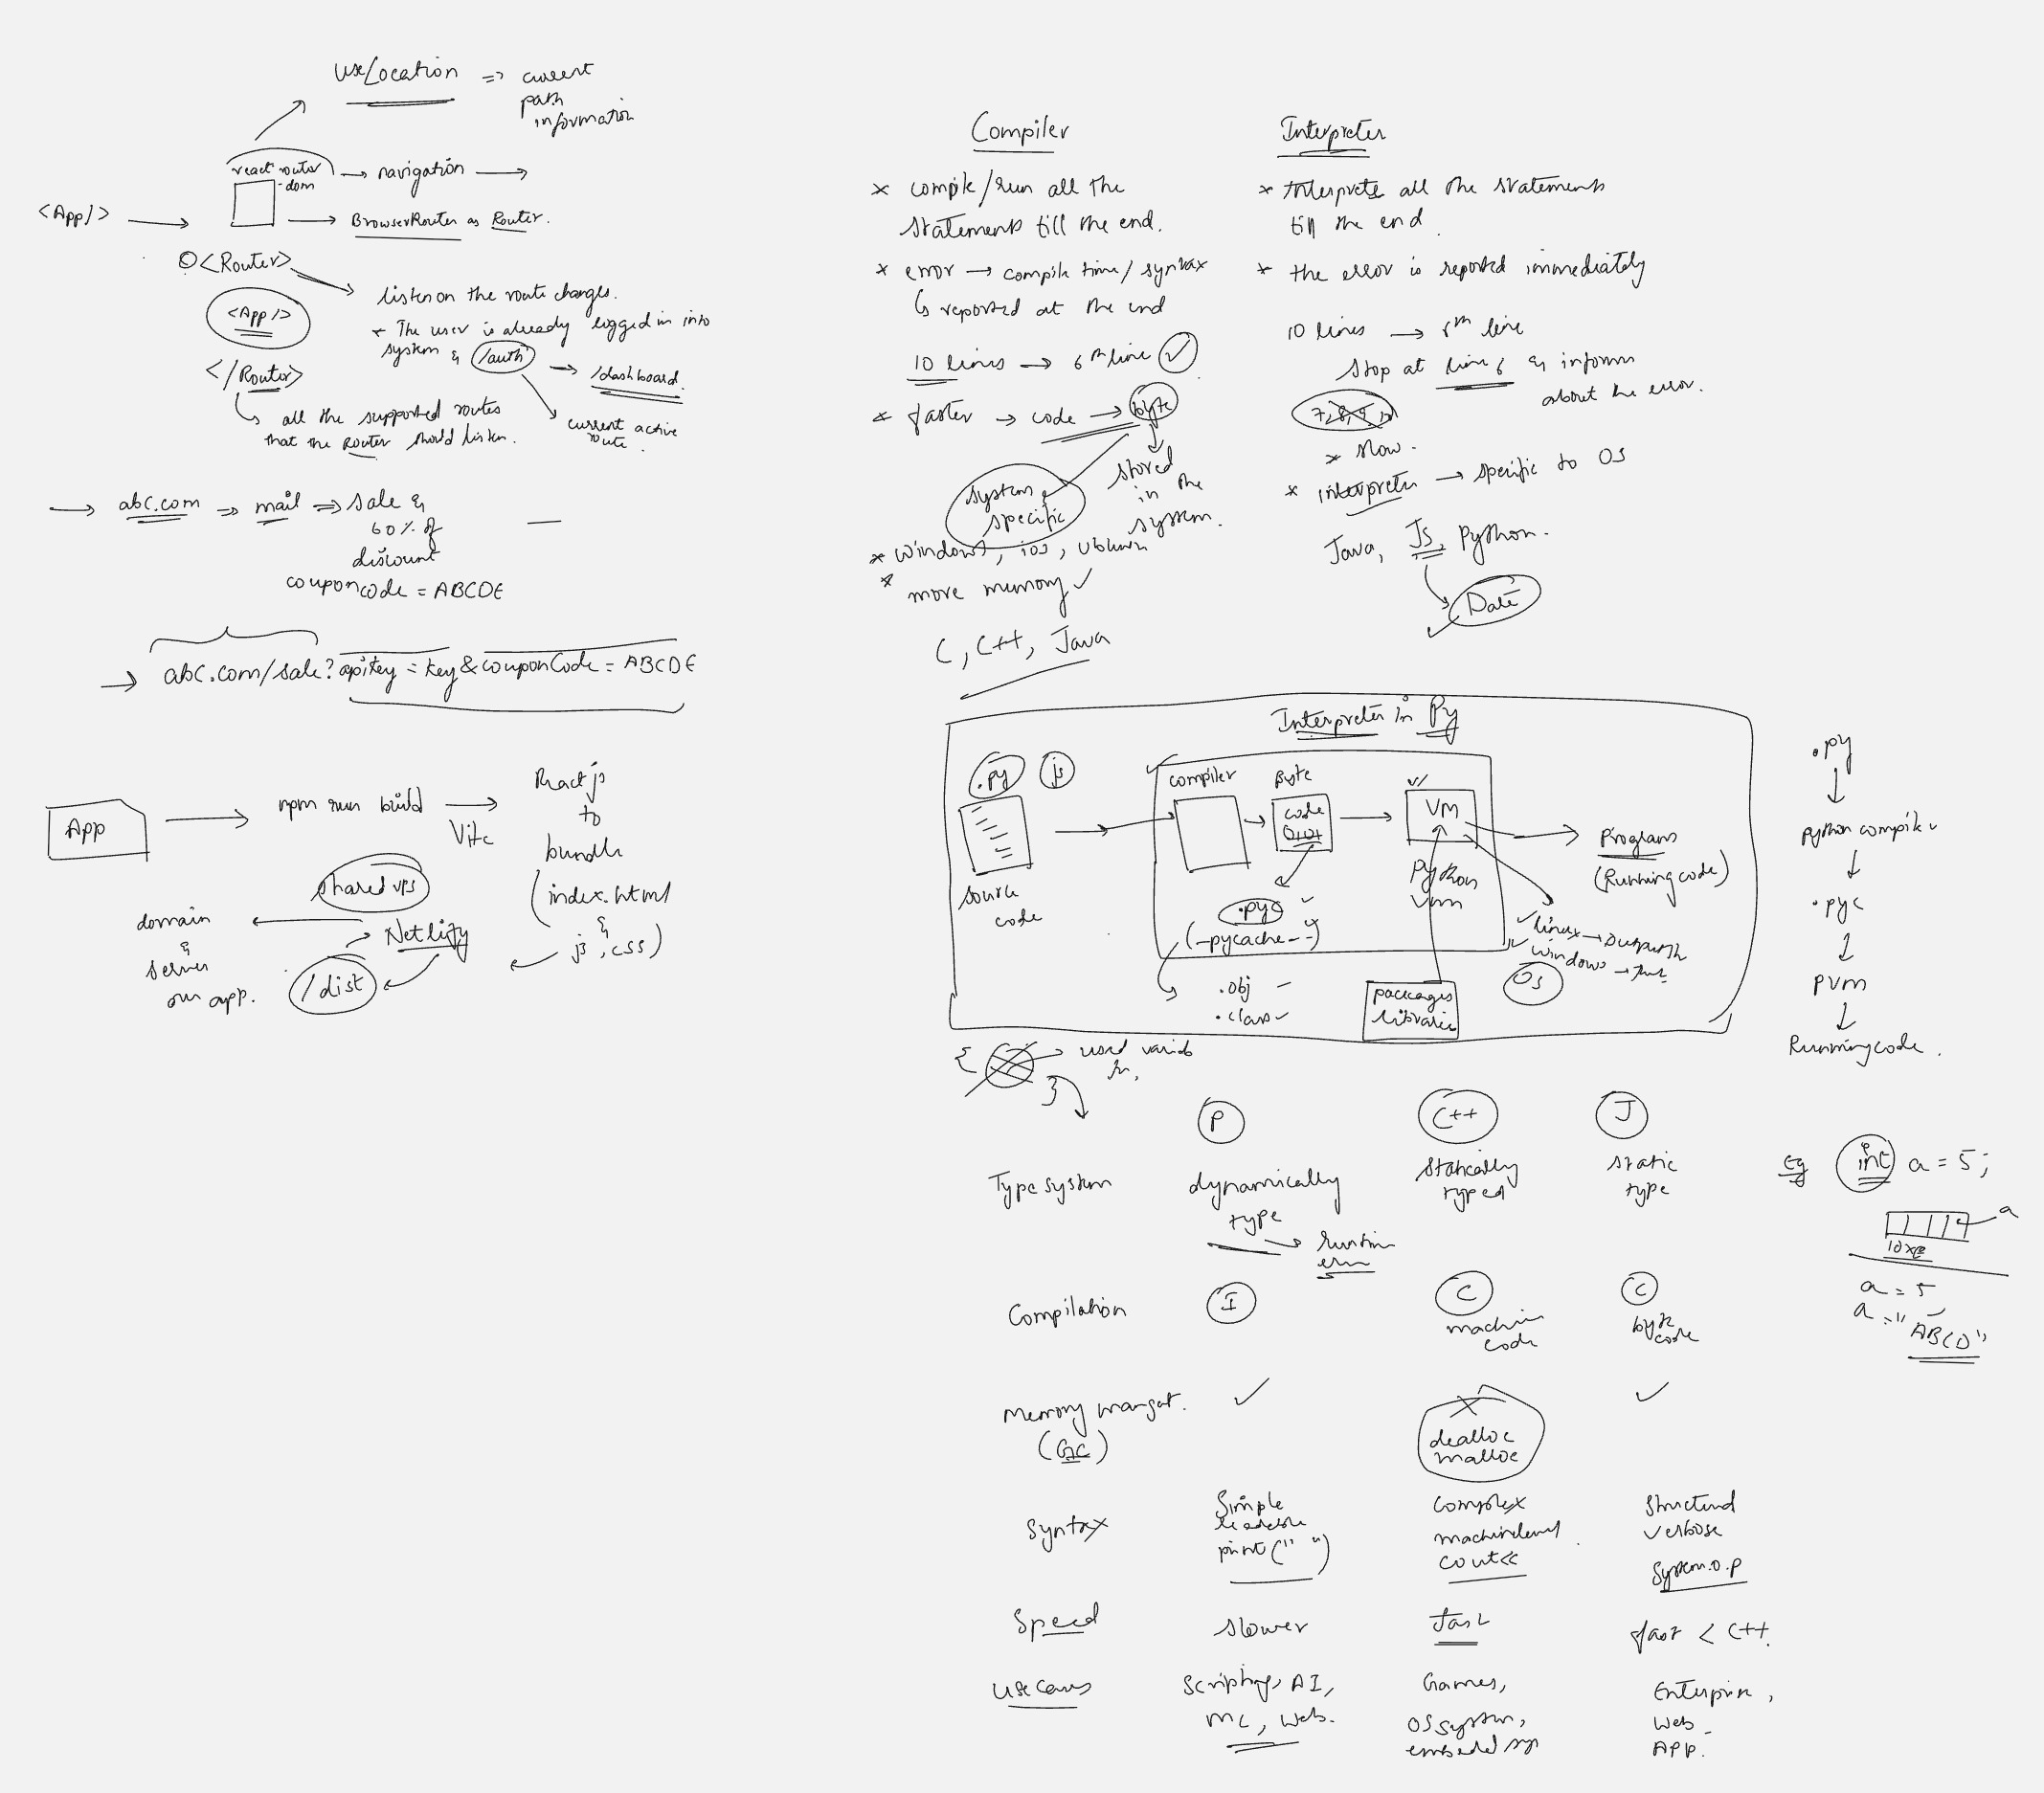 useLocation => current
path
information
react-router
-dom
→ navigation →
<App/> →
→ BrowserRouter as Router.
<Router>
<App />
</Router>
listen on the route changes.
* The user is already logged in into
system & /auth → /dashboard
current active
route.
all the supported routes
that the Router should listen.
→ abc.com => mail => Sale &
60% of
discount
couponcode = ABCDE
→ abc.com/sale?apikey=key&couponCode=ABCDE
App → npm run build →
Vite
React js
to
bundle
(index.html
&
js, css)
shared vps
Netlify
/dist
domain
&
server
our app.
Compiler
* compile/run all the
statements till the end.
* error → compile time/syntax
↳ reported at the end
10 lines → 6th line ✓
* faster → code → byte
system
specific
stored
in the
system.
* windows, ios, ubuntu
* more memory ✓
C, C++, Java
Interpreter
* Interprets all the statements
till the end.
* the error is reported immediately
10 lines → 6th line
Stop at line 6 & inform
about the error.
7,8,9,10
* slow.
* interpreter → specific to OS
Java, JS, Python.
Date
Interpreter in Py
.py js
source
code
compiler
Byte
code
VM
Python
vm
.pyc
(-pycache--)
.obj
.class
packages
libraries
Programs
(Running code)
linux →
windows →
OS
.py
↓
python compiler
↓
.pyc
↓
PVM
↓
Running code.
{
}
used
P C++ J
Type system
dynamically
type
→ runtime
statically
typed
static
type
Eg int a = 5;
a
a = 5
a = "ABCD"
Compilation
I
C
machine
code
C
byte
code
Memory
(GC)
✓
X
dealloc
malloc
✓
Syntax
Simple
readable
print(" ")
complex
cout<<
structured
verbose
System.o.p
Speed
slower
fast
fast < C++.
Use cases
Scripting, AI,
ML, Web.
Games,
OS system,
embeded sys
Enterprise,
Web
APP.